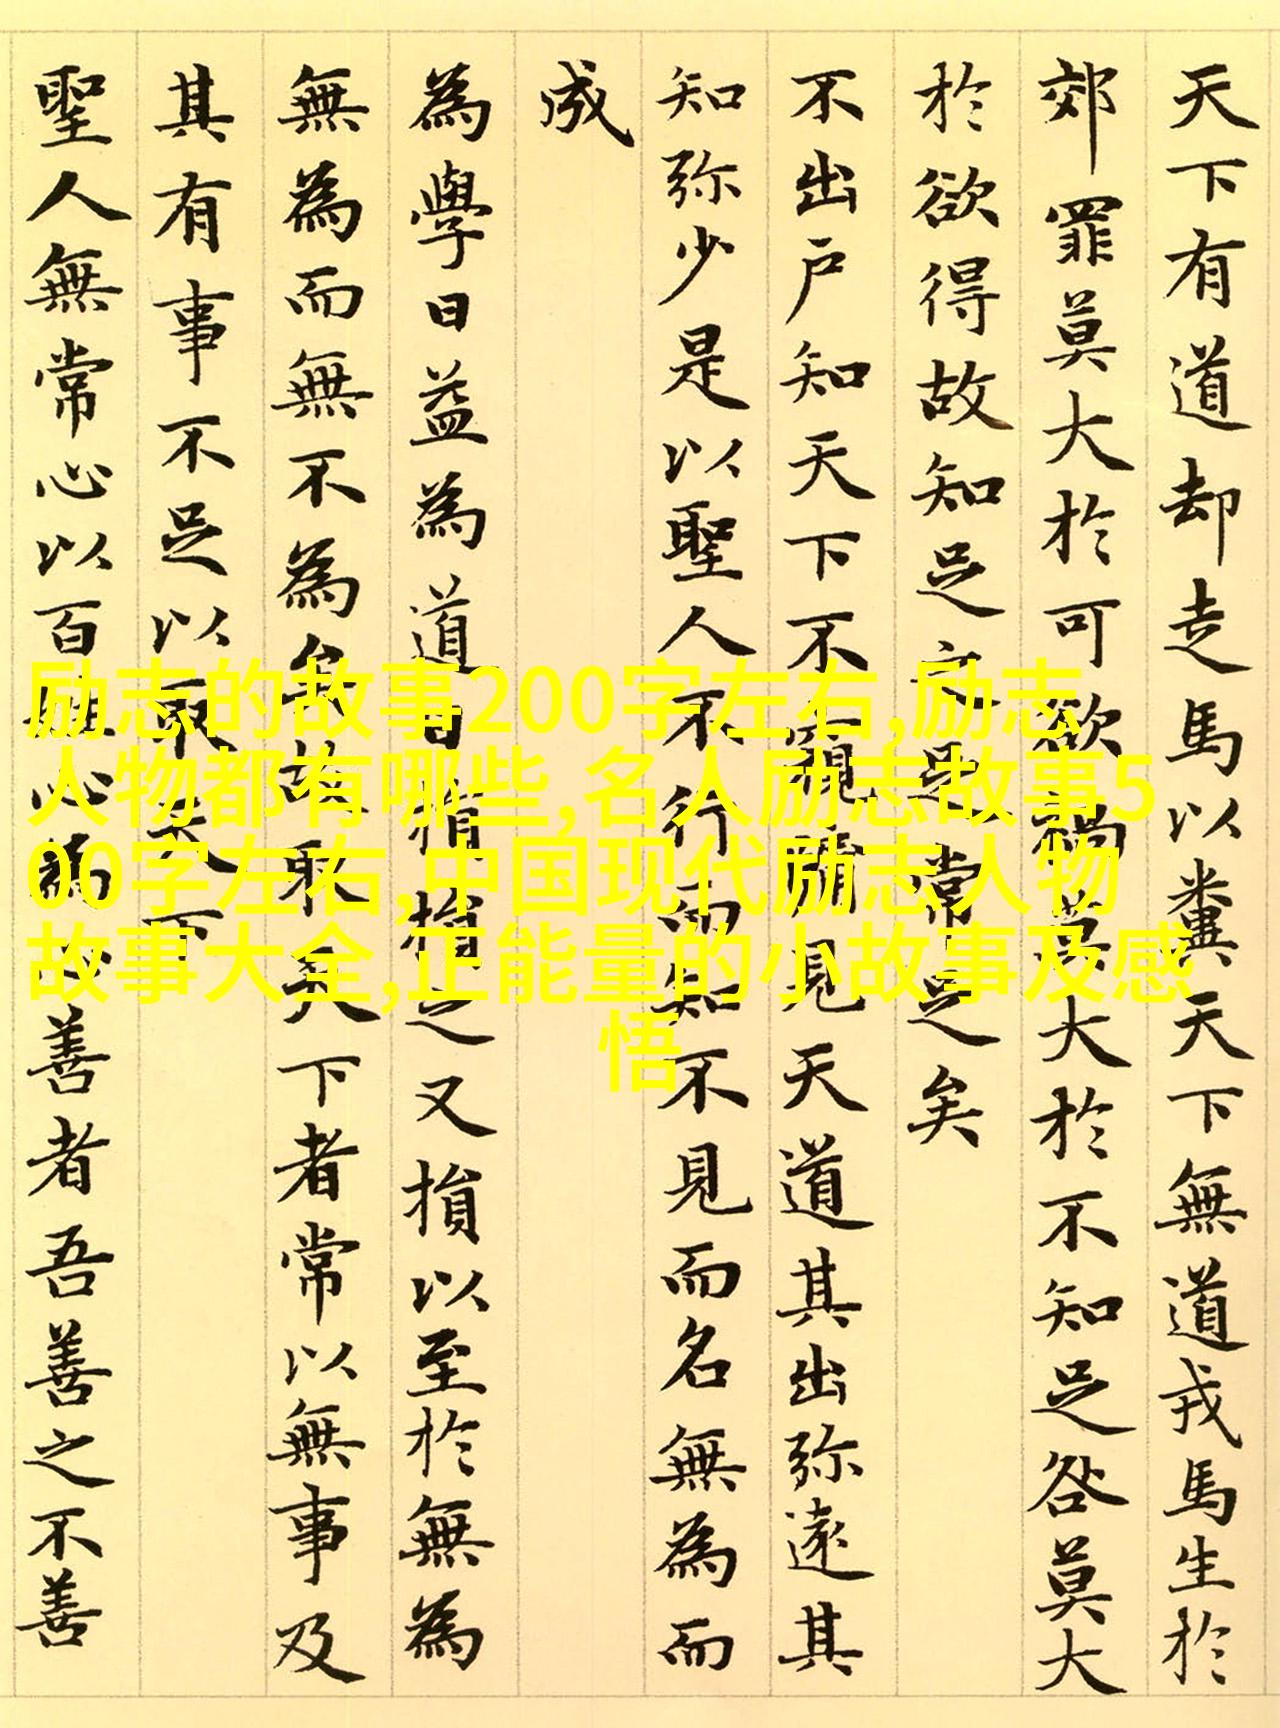 天下有道却走馬以糞天下無道戎馬生於
郊罪莫大於可欲禍莫大於不知足咎莫大
於欲得故知足之足常足矣
不出戶知天下不窺牖見天道其出弥遠其
知弥少是以聖人不行而知不見而名無為而
成
為學日益為道日損損之又損以至於無為
無為而無不為矣故取天下者常以無事及
其有事不足以取天下
聖人無常心以百姓心為心善者吾善之不善
励志的故事200字左右,励志
人物都有哪些,名人励志故事5
00字左右,中国现代励志人物
故事大全,正能量的小故事及感
悟